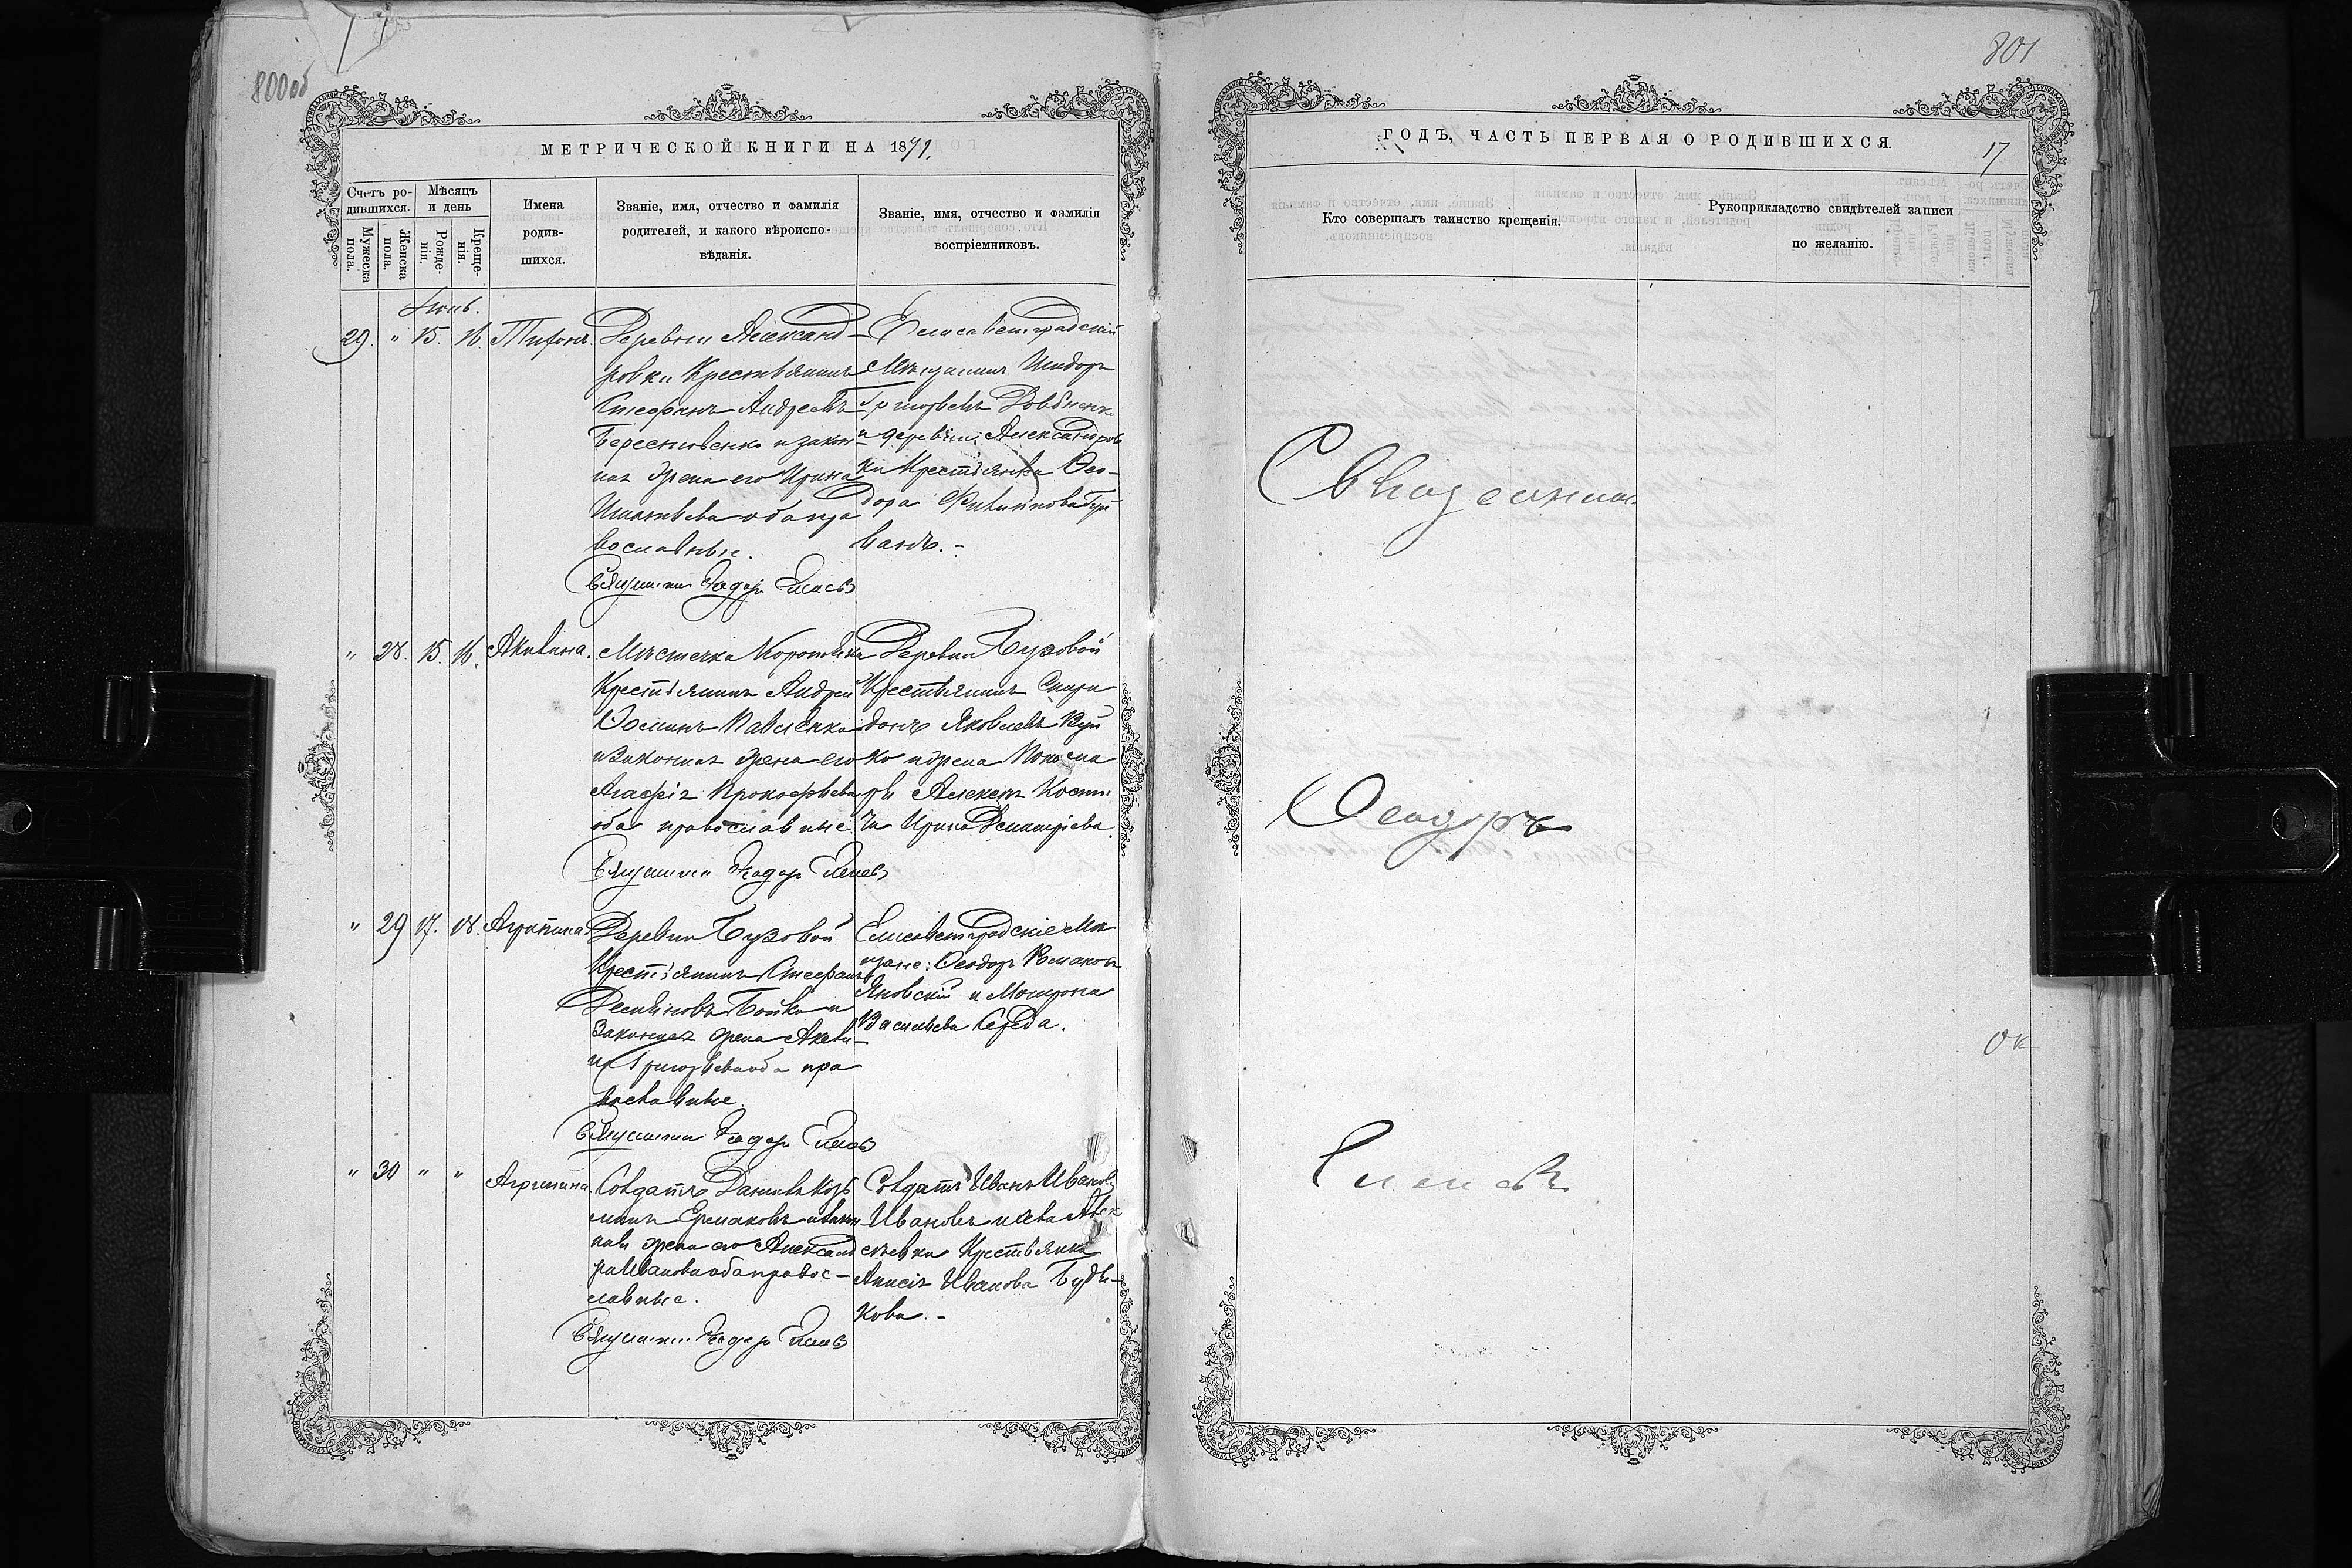 800об
МЕТРИЧЕСКОЙ КНИГИ НА 1871.
Счетъ родившихся.
Мѣсяцъ и день
Мужеска пола.
Женска пола.
Рожденія.
Крещенія.
Имена родившихся.
Званіе, имя, отчество и фамилія родителей, и какого вѣроисповѣданія.
Званіе, имя, отчество и фамилія воспріемниковъ.
Іюнь.
29. " 15. 16. Тихонъ.
Деревни Александ-
ровки Крестьянинъ
Стефанъ Андреевъ
и закон-
ная жена его Ирина
Игнатьева оба пра
вославные.
Священникъ Ѳеодоръ
Елисаветградскій
Мѣщанинъ Исидоръ
Григорьевъ Довбненко
и деревни Александров
ки Крестьянка Ѳео-
дора
ванъ. -
" 28. 15. 16. Акилина.
Мѣстечка
Крестьянинъ Андрей
Ѳоминъ Павленко
и законная жена его
Агафія Прокофьева
оба православные.
Священникъ Ѳеодоръ
Деревни Бузовой
Крестьянинъ Спири
донъ Яковлевъ Буй
ко и жена Понома
ря Алексея
Ирина Димитріева.
" 29 17. 18. Агрипина
Деревни Бузовой
Крестьянинъ Стефанъ
Деміяновъ Бойко и
законная жена Акили
на Григорьева оба пра
вославные.
Священникъ Ѳеодоръ
Елисаветградскіе Мѣ
щане: Ѳеодоръ Романовъ
Яновскій и Мотрона
Васильева Середа.
" 30 " " Агрипина.
Солдатъ Даніилъ Козь
минъ Ермаковъ и закон
ная жена его Александ
ра Иванова оба правос-
лавные.
Священникъ Ѳеодоръ
Солдатъ Иванъ Ивановъ
Ивановъ и села Алек
сѣевки Крестьянка
Анисія Иванова Будни-
кова. -
801
ГОДЪ, ЧАСТЬ ПЕРВАЯ О РОДИВШИХСЯ.
17
Кто совершалъ таинство крещенія.
Рукоприкладство свидѣтелей записи по желанію.
Священникъ
Ѳеодоръ